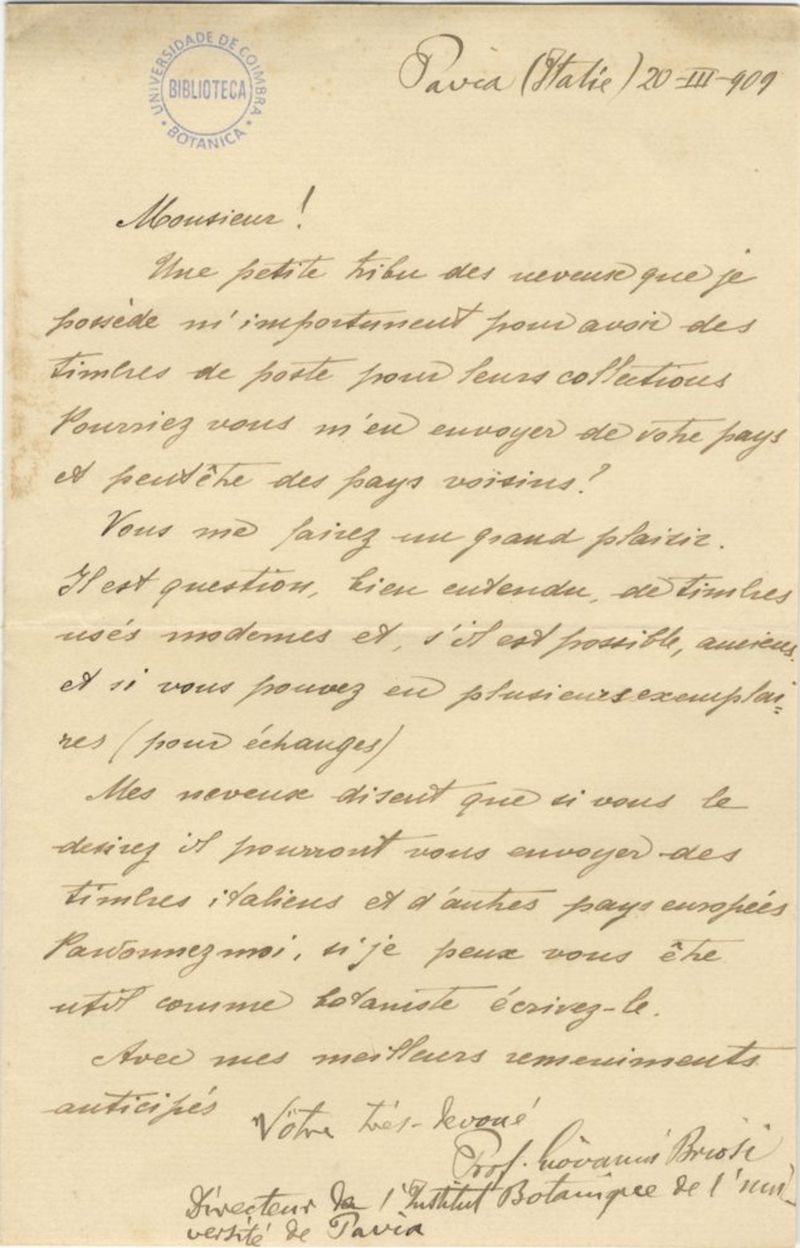 UNIVERSIDADE DE COIMBRA
BIBLIOTECA
BOTANICA
Pavia (Italie) 20-III-909
Monsieur!
Une petite tribu des neveux que je
possède m'importunent pour avoir des
timbres de poste pour leurs collections
Pourriez vous m'en envoyer de votre pays
et peutêtre des pays voisins?
Vous me fairez un grand plaisir.
Il est question, bien entendu, de timbres
usés modernes et, s'il est possible, anciens
et si vous pouvez en plusieurs exemplai=
res (pour échanges)
Mes neveux disent que si vous le
desirez il pourront vous envoyer des
timbres italiens et d'autres pays européés
Pardonnez moi, si je peux vous être
util comme botaniste écrivez-le.
Avec mes meilleurs remerciments
anticipés
Vôtre très-devoué
Prof. Giovanni Briosi
Directeur de l'Institut Botanique de l'Uni-
versité de Pavia